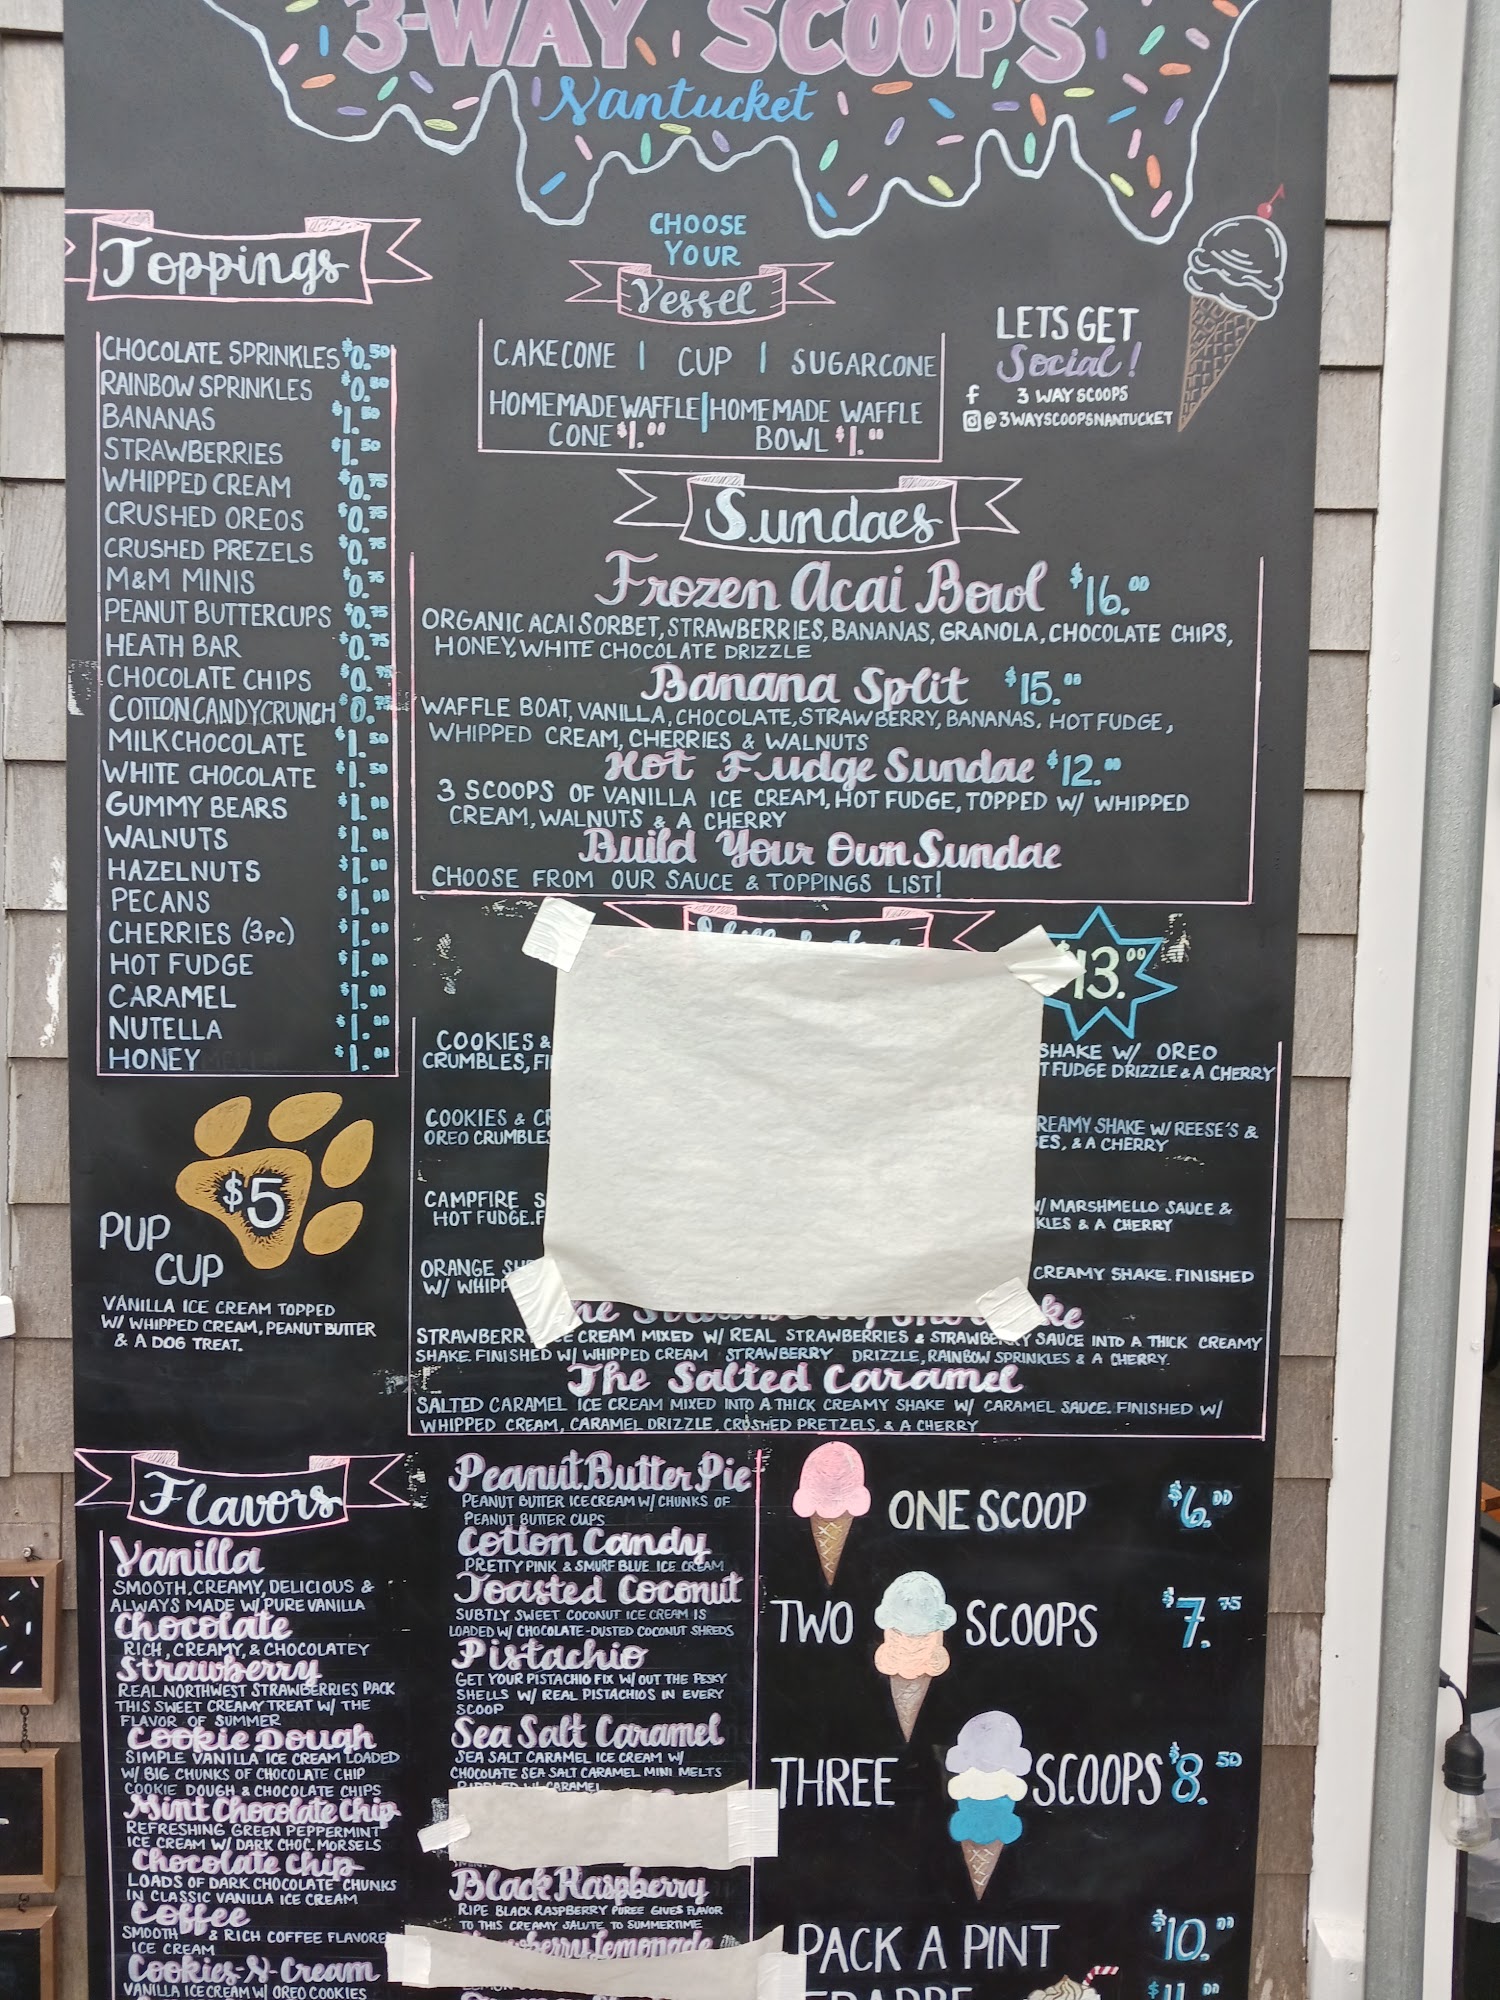 3-WAY SCOOPS
Nantucket
Toppings
CHOCOLATE SPRINKLES $0.50
RAINBOW SPRINKLES $0.50
BANANAS $1.50
STRAWBERRIES $1.50
WHIPPED CREAM $0.75
CRUSHED OREOS $0.75
CRUSHED PREZELS $0.75
M&M MINIS $0.75
PEANUT BUTTERCUPS $0.75
HEATH BAR $0.75
CHOCOLATE CHIPS $0.75
COTTON CANDY CRUNCH $0.75
MILK CHOCOLATE $1.50
WHITE CHOCOLATE $1.50
GUMMY BEARS $1.00
WALNUTS $1.00
HAZELNUTS $1.00
PECANS $1.00
CHERRIES (3PC) $1.00
HOT FUDGE $1.00
CARAMEL $1.00
NUTELLA $1.00
HONEY $1.00
PUP
CUP
$5
VANILLA ICE CREAM TOPPED
W/ WHIPPED CREAM, PEANUT BUTTER
& A DOG TREAT.
CHOOSE
YOUR
Vessel
CAKE CONE | CUP | SUGAR CONE
HOMEMADE WAFFLE | HOMEMADE WAFFLE
CONE $1.00 BOWL $1.00
LETS GET
Social!
f 3 WAY SCOOPS
@3WAYSCOOPSNANTUCKET
Sundaes
Frozen Acai Bowl $16.00
ORGANIC ACAI SORBET, STRAWBERRIES, BANANAS, GRANOLA, CHOCOLATE CHIPS,
HONEY, WHITE CHOCOLATE DRIZZLE
Banana Split $15.00
WAFFLE BOAT, VANILLA, CHOCOLATE, STRAWBERRY, BANANAS. HOT FUDGE,
WHIPPED CREAM, CHERRIES & WALNUTS
Hot Fudge Sundae $12.00
3 SCOOPS OF VANILLA ICE CREAM, HOT FUDGE, TOPPED W/ WHIPPED
CREAM, WALNUTS & A CHERRY
Build Your Own Sundae
CHOOSE FROM OUR SAUCE & TOPPINGS LIST!
$13.00
COOKIES & SHAKE W/ OREO
CRUMBLES, FUDGE DRIZZLE & A CHERRY
COOKIES & SHAKE W/ REESE'S &
OREO CRUMBLES & A CHERRY
CAMPFIRE W/ MARSHMELLO SAUCE &
HOT FUDGE. & A CHERRY
ORANGE CREAMY SHAKE. FINISHED
W/
STRAWBERRY CREAM MIXED W/ REAL STRAWBERRIES & STRAWBERRY SAUCE INTO A THICK CREAMY
SHAKE. FINISHED W/ WHIPPED CREAM STRAWBERRY DRIZZLE, RAINBOW SPRINKLES & A CHERRY.
The Salted Caramel
SALTED CARAMEL ICE CREAM MIXED INTO A THICK CREAMY SHAKE W/ CARAMEL SAUCE. FINISHED W/
WHIPPED CREAM, CARAMEL DRIZZLE, CRUSHED PRETZELS, & A CHERRY
Flavors
Vanilla
SMOOTH, CREAMY, DELICIOUS &
ALWAYS MADE W/ PURE VANILLA
Chocolate
RICH, CREAMY, & CHOCOLATEY
Strawberry
REAL NORTHWEST STRAWBERRIES PACK
THIS SWEET CREAMY TREAT W/ THE
FLAVOR OF SUMMER
Cookie Dough
SIMPLE VANILLA ICE CREAM LOADED
W/ BIG CHUNKS OF CHOCOLATE CHIP
COOKIE DOUGH & CHOCOLATE CHIPS
Mint Chocolate Chip
REFRESHING GREEN PEPPERMINT
ICE CREAM W/ DARK CHOC. MORSELS
Chocolate Chip
LOADS OF DARK CHOCOLATE CHUNKS
IN CLASSIC VANILLA ICE CREAM
Coffee
SMOOTH & RICH COFFEE FLAVORE
ICE CREAM
Cookies-N-Cream
VANILLA ICE CREAM W/ OREO COOKIES
Peanut Butter Pie
PEANUT BUTTER ICE CREAM W/ CHUNKS OF
PEANUT BUTTER CUPS
Cotton Candy
PRETTY PINK & SMURF BLUE ICE CREAM
Toasted Coconut
SUBTLY SWEET COCONUT ICE CREAM IS
LOADED W/ CHOCOLATE-DUSTED COCONUT SHREDS
Pistachio
GET YOUR PISTACHIO FIX W/OUT THE PESKY
SHELLS W/ REAL PISTACHIOS IN EVERY
SCOOP
Sea Salt Caramel
SEA SALT CARAMEL ICE CREAM W/
CHOCOLATE SEA SALT CARAMEL MINI MELTS
RIPPLED W/ CARAMEL
Black Raspberry
RIPE BLACK RASPBERRY PUREE GIVES FLAVOR
TO THIS CREAMY SALUTE TO SUMMERTIME
Lemonade
ONE SCOOP $6.00
TWO SCOOPS $7.75
THREE SCOOPS $8.50
PACK A PINT $10.00
FRAPPE $11.00